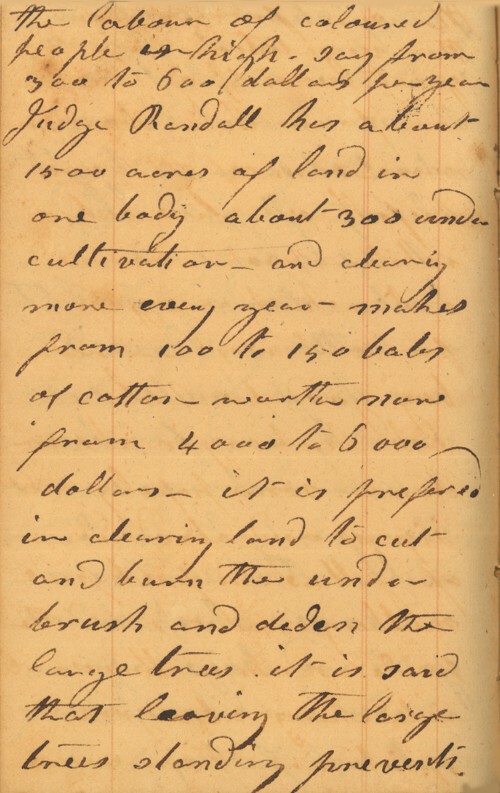 the labour of coloured
people is high. say from
300 to 600 dollars per year
Judge Randall has about
1500 acres of land in
one body about 300 under
cultivation - and clearing
more every year - makes
from 100 to 150 bales
of cotton worth now
from 4000 to 6000
dollars - it is prefered
in clearing land to cut
and burn the under
brush and deden the
large trees. it is said
that leaving the large
trees standing prevents